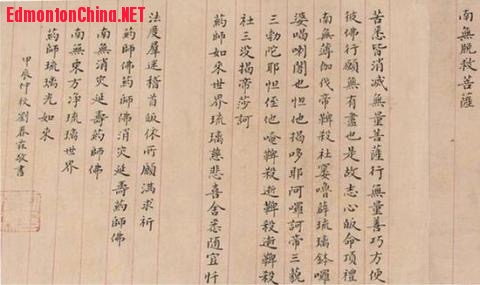 EdmontonChina.NET
南無脫救菩薩
苦悉皆消滅無量菩薩行無量善巧方便
彼佛行願無有盡也是故志心皈命頂禮
南無薄伽伐帝鞞殺社窶嚕薜琉璃鉢囉
婆喝喇闍也怛他揭哆耶阿囉訶帝三藐
三勃陀耶怛侄他唵鞞殺逝鞞殺逝鞞殺
社三没揭帝莎訶
葯師如來世界琉璃慈悲喜舍悉隨宜忏
法度羣迷稽首皈依所願滿求祈
葯師佛葯師佛消灾延壽葯師佛
南無消灾延壽葯師佛
南無東方净琉璃世界
葯師琉璃光如來
甲辰仲秋劉春霖敬書